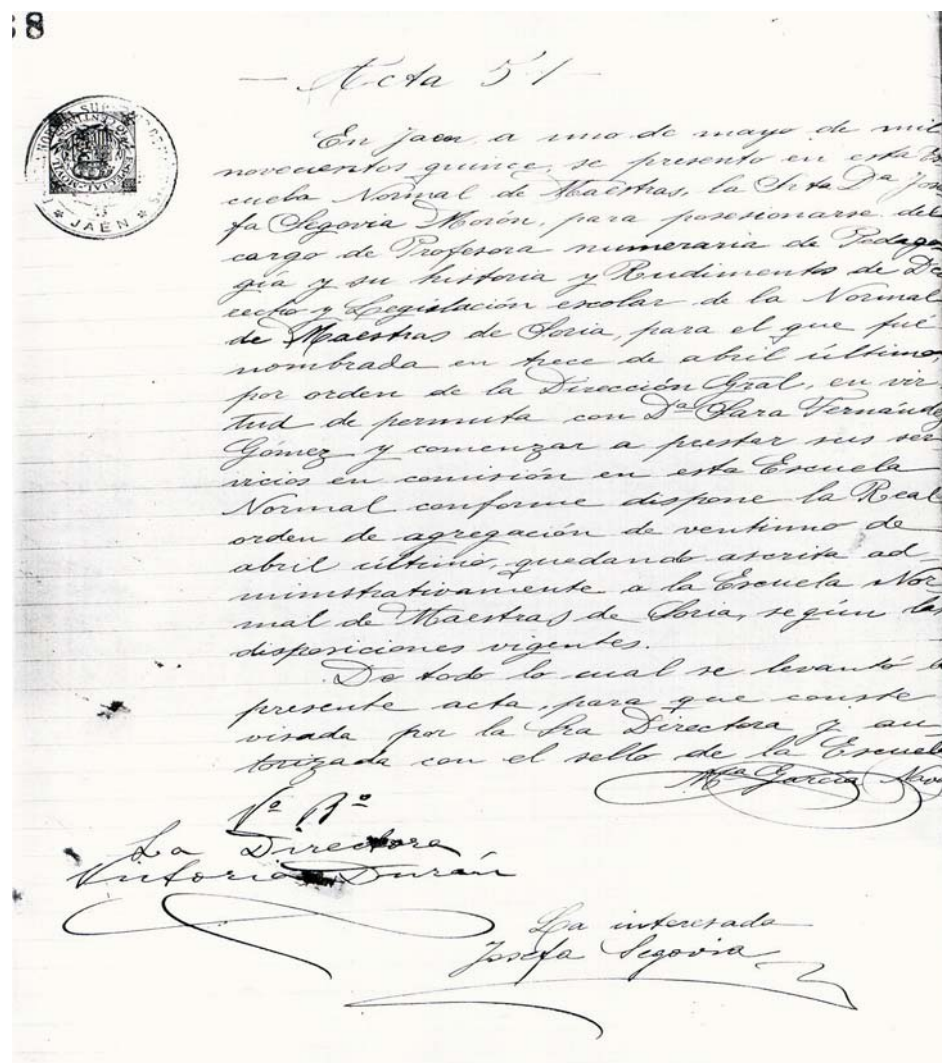 38
— Acta 51 —
En Jaen, a uno de mayo de mil
novecientos quince, se presento en esta Es
cuela Normal de Maestras, la Srta Dª Jose
fa Segovia Morón, para posesionarse del
cargo de Profesora numeraria de Pedago
gía y su historia y Rudimentos de De
recho y Legislación escolar de la Normal
de Maestras de Soria, para el que fué
nombrada en trece de abril último,
por orden de la Dirección Gral, en vir
tud de permuta con Dª Sara Fernández
Gómez y comenzar a prestar sus ser
vicios en comisión en esta Escuela
Normal conforme dispone la Real
orden de agregación de ventiuno de
abril último, quedando ascrita ad-
ministrativamente a la Escuela Nor
mal de Maestras de Soria, según las
disposiciones vigentes.
De todo lo cual se levantó la
presente acta, para que conste
visada por la Sra Directora y au
torizada con el sello de la Escuela
Mª García
Vº Bº
La Directora
Victoria Durán
La interesada
Josefa Segovia
JAÉN